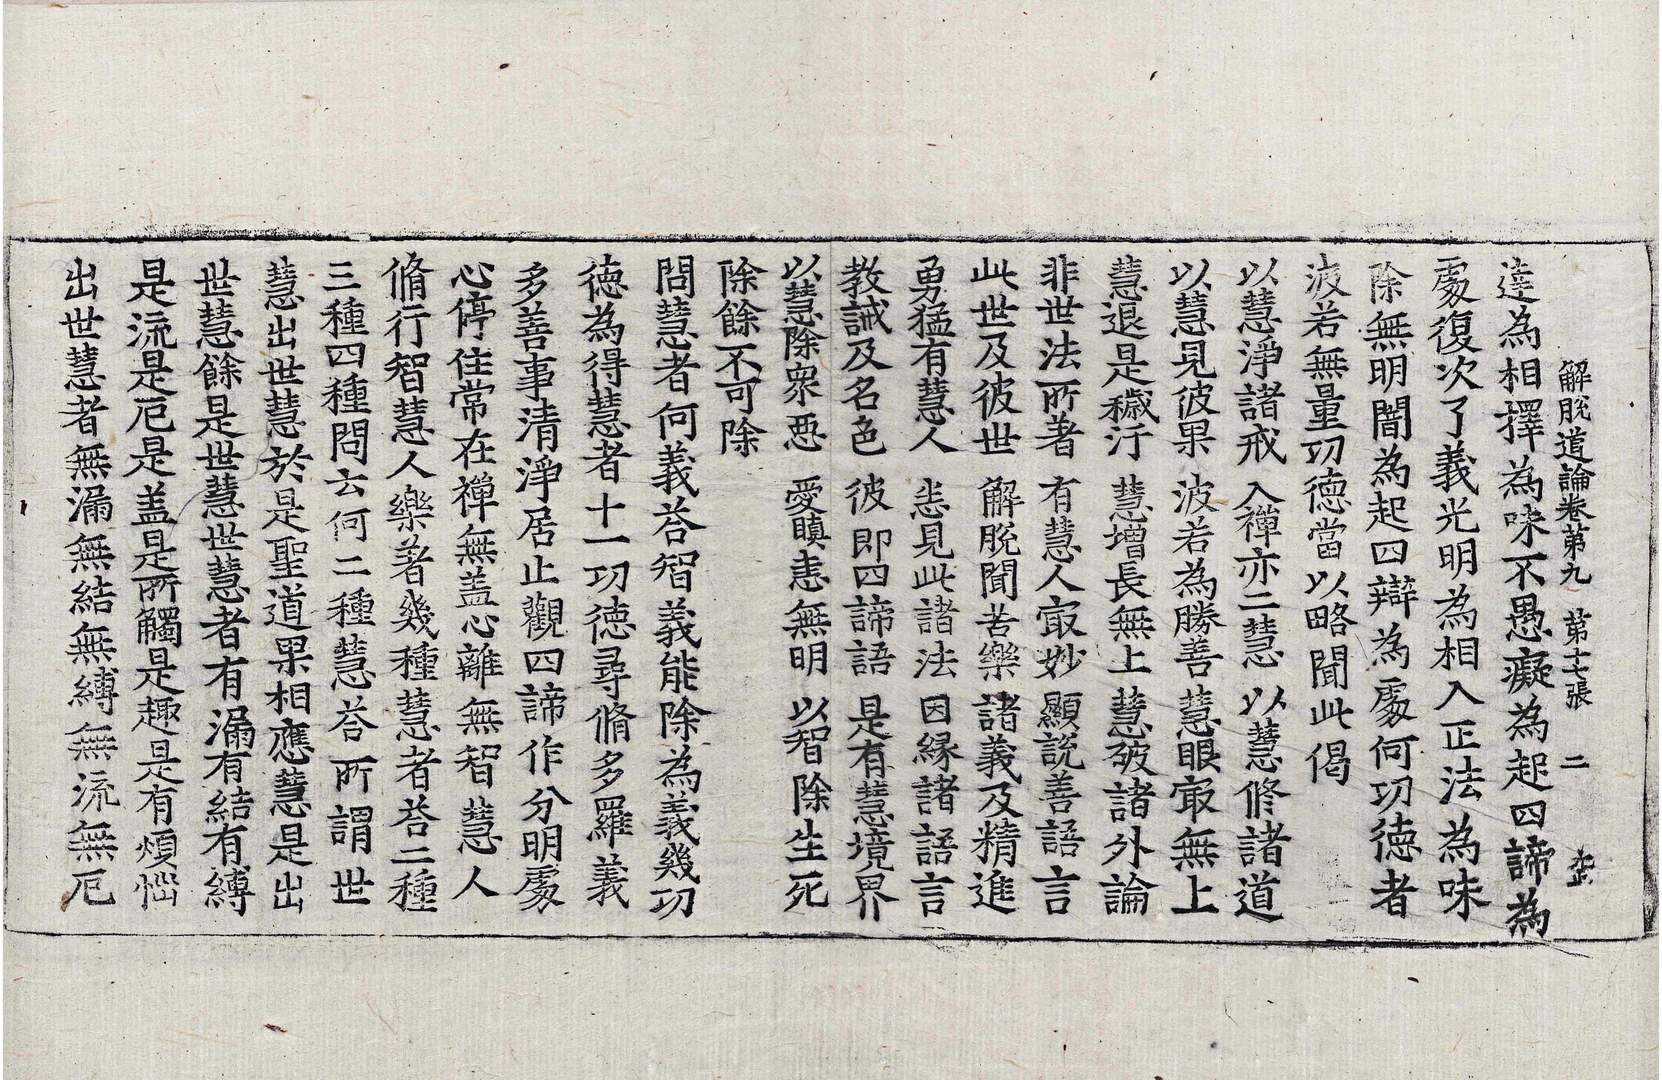 解脫道論卷第九　第十七張　二
達為相擇為味不愚癡為起四諦為
處復次了義光明為相入正法為味
除無明闇為起四辯為處何功德者
波若無量功德當以略聞此偈
以慧淨諸戒　入禪亦二慧　以慧修諸道
以慧見彼果　波若為勝善　慧眼㝡無上
慧退是穢汙　慧增長無上　慧破諸外論
非世法所著　有慧人㝡妙　顯說善語言
此世及彼世　解脫聞苦樂　諸義及精進
勇猛有慧人　恙見此諸法　因緣諸語言
教誡及名色　彼即四諦語　是有慧境界
以慧除衆惡　愛瞋恚無明　以智除生死
除餘不可除
問慧者何義荅智義能除為義幾功
德為得慧者十一功德尋脩多羅義
多善事清淨居止觀四諦作分明處
心停住常在禪無盖心離無智慧人
脩行智慧人樂著幾種慧者荅二種
三種四種問云何二種慧荅所謂世
慧出世慧於是聖道果相應慧是出
世慧餘是世慧世慧者有漏有結有縛
是流是厄是盖是所觸是趣是有煩惱
出世慧者無漏無結無縛無流無厄